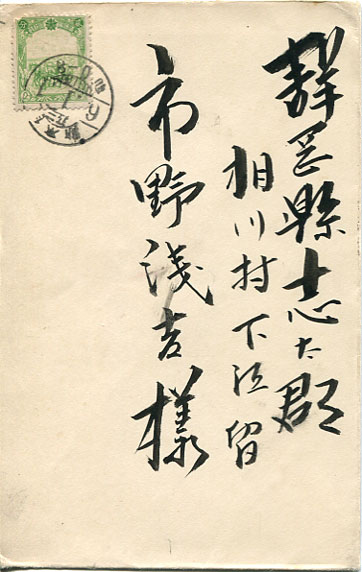 静岡縣志太郡
相川村下江留
市野浅吉様